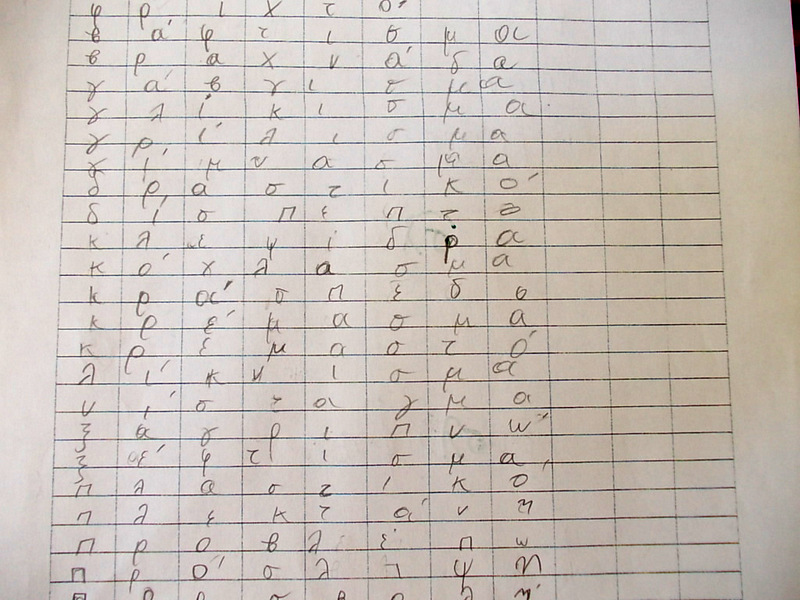 φριχτό
βάφτισμα
βραχνάδα
γάβγισμα
γλίκισμα
γρίλισμα
γίμνασμα
δραστικό
δίσπεπτο
κλεψίδρα
κόχλασμα
κράσπεδο
κρέμασμα
κρεμαστό
λίκνισμα
νίσταγμα
ξαγριπνώ
ξέφτισμα
πλαστικο
πλεκτάνη
προβλέπω
πρόσλιψη